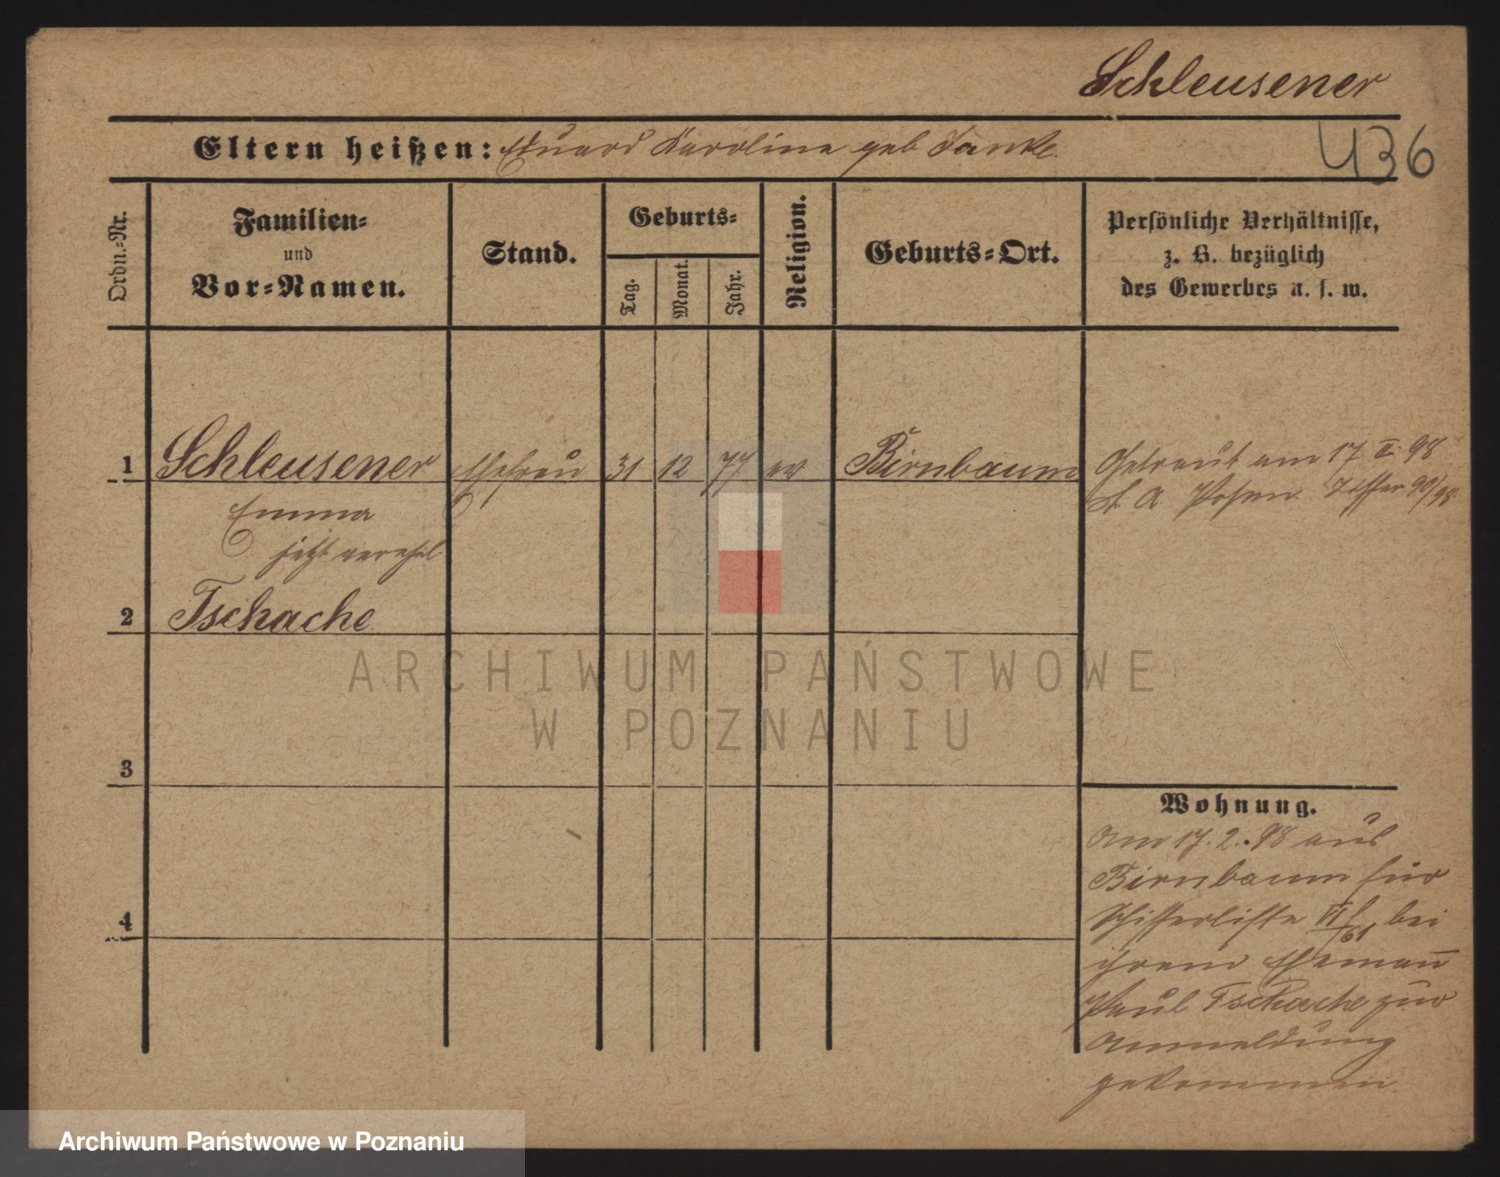 Schleusener
Eltern heißen: Eduard Karoline geb Janke.
436
Ordn.-Nr.
Familien-
und
Vor-Namen.
Stand.
Geburts-
Tag.
Monat.
Jahr.
Religion.
Geburts-Ort.
Persönliche Verhältnisse,
z. B. bezüglich
des Gewerbes u. s. w.
1 Schleusener Ehefrau 31 12 77 ev Birnbaum
Getraut am 17 II 98
St. A. Posen 90/98
Emma
jetzt verehel
2 Tschache
3
4
Wohnung.
Am 17. 2. 98 aus
Birnbaum für
Schifferliste VI bei
61
ihrem Eheman̄
Paul Tschache zur
Anmeldung
gekommen.
ARCHIWUM PAŃSTWOWE
W POZNANIU
Archiwum Państwowe w Poznaniu